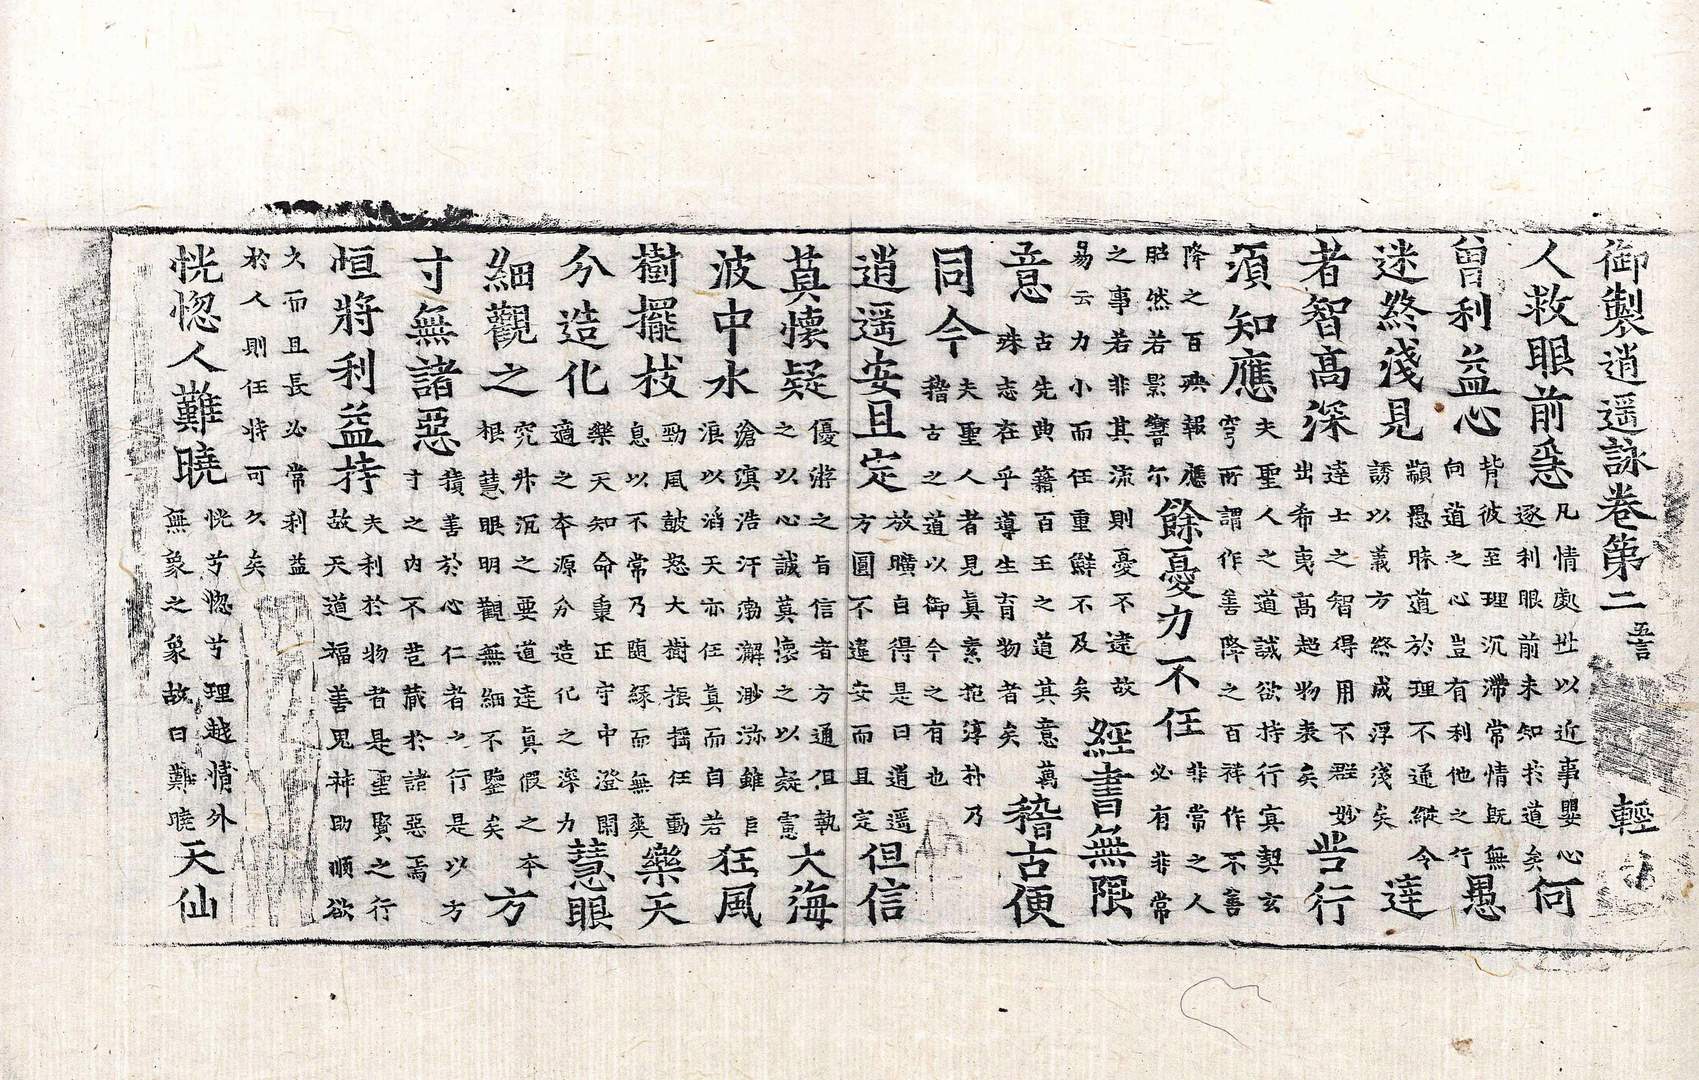 御製逍遥詠卷第二 五言 輕
人救眼前急
凡情處世以近事嬰心
逐利眼前未知求道矣
何
曾利益心
背彼至理沉滯常情既無
向道之心豈有利他之行
愚
迷終淺見
顓愚昧道於理不通縱令
誘以義方終成浮淺矣
達
者智高深
達士之智得用不群妙
出希夷高超物表矣
甞行
須知應
夫聖人之道誠欲持行冥契玄
穹所謂作善降之百祥作不善
降之百殃報應
昭然若影響尓
餘憂力不任
非常之人
必有非常
之事若非其流則憂不逮故
易云力小而任重鮮不及矣
經書無限
意
古先典籍百王之道其意萬
殊志在乎導生育物者矣
稽古便
同今
夫聖人者見眞素抱淳朴乃
稽古之道以御今之有也
逍遥安且定
放曠自得是曰逍遥
方圓不違安而且定
但信
莫懷疑
優游之旨信者方通但執
之以心誠莫懷之以疑憲
大海
波中水
滄溟浩汗渤澥渺瀰雖巨
浪以滔天亦任眞而自若
狂風
樹擺枝
勁風鼓怒大樹振搖任動
息以不常乃随緣而無爽
樂天
分造化
樂天知命秉正守中澄關
適之本源分造化之深力
慧眼
細觀之
究升沉之要道達眞假之本
根慧眼明觀無細不鑒矣
方
寸無諸惡
積善於心仁者之行是以方
寸之内不苞藏於諸惡焉
恒將利益持
夫利於物者是聖賢之行
故天道福善鬼神助順欲
久而且長必常利益
於人則任持可久矣
恍惚人難曉
恍兮惚兮理越情外
無象之象故曰難曉
天仙